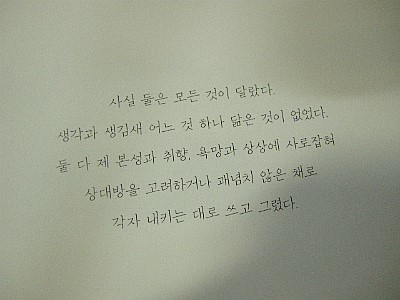 사실 둘은 모든 것이 달랐다.
생각과 생김새 어느 것 하나 닮은 것이 없었다.
둘 다 제 본성과 취향, 욕망과 상상에 사로잡혀
상대방을 고려하거나 괘념치 않은 채로
각자 내키는 대로 쓰고 그렸다.